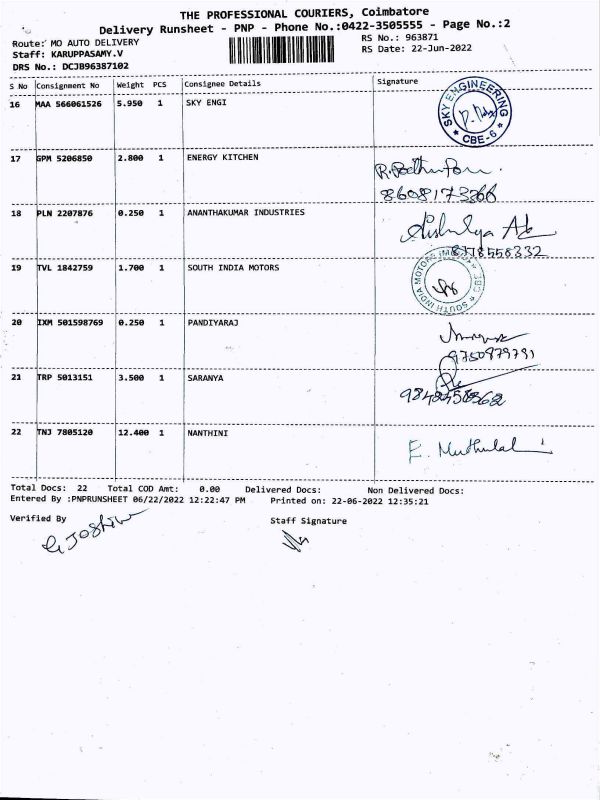 THE PROFESSIONAL COURIERS, Coimbatore
Delivery Runsheet - PNP - Phone No.:0422-3505555 - Page No.:2
Route: MO AUTO DELIVERY
RS No.: 963871
Staff: KARUPPASAMY.V
RS Date: 22-Jun-2022
DRS No.: DCJB96387102
S No Consignment No Weight PCS Consignee Details Signature
16 MAA 566061526 5.950 1 SKY ENGI
SKY ENGINEERING
* CBE-6 *
17 GPM 5206850 2.800 1 ENERGY KITCHEN
18 PLN 2207876 0.250 1 ANANTHAKUMAR INDUSTRIES
8778558332
19 TVL 1842759 1.700 1 SOUTH INDIA MOTORS
SOUTH INDIA MOTORS
20 IXM 501598769 0.250 1 PANDIYARAJ
9750879791
21 TRP 5013151 3.500 1 SARANYA
22 TNJ 7805120 12.400 1 NANTHINI
Total Docs: 22 Total COD Amt: 0.00 Delivered Docs: Non Delivered Docs:
Entered By :PNPRUNSHEET 06/22/2022 12:22:47 PM Printed on: 22-06-2022 12:35:21
Verified By
Staff Signature